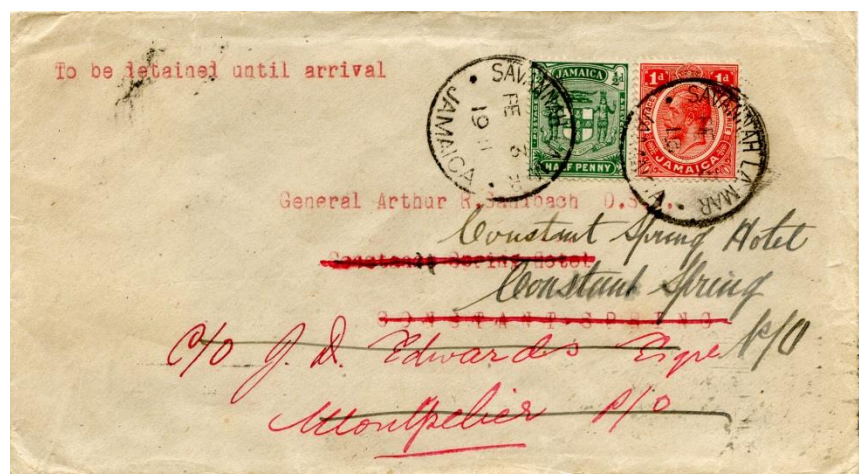 To be detained until arrival
SAVANNAH LA MAR
FE 3
19
JAMAICA
JAMAICA
½d
POSTAGE
HALF PENNY
1d 1d
JAMAICA
SAVANNAH LA MAR
FE
19
General Arthur R. O.S.
Constant Spring Hotel
Constant Spring Hotel
Constant Spring
CONSTANT SPRING
P/O
C/o J. D. Edwards Esqre
Montpelier P/O